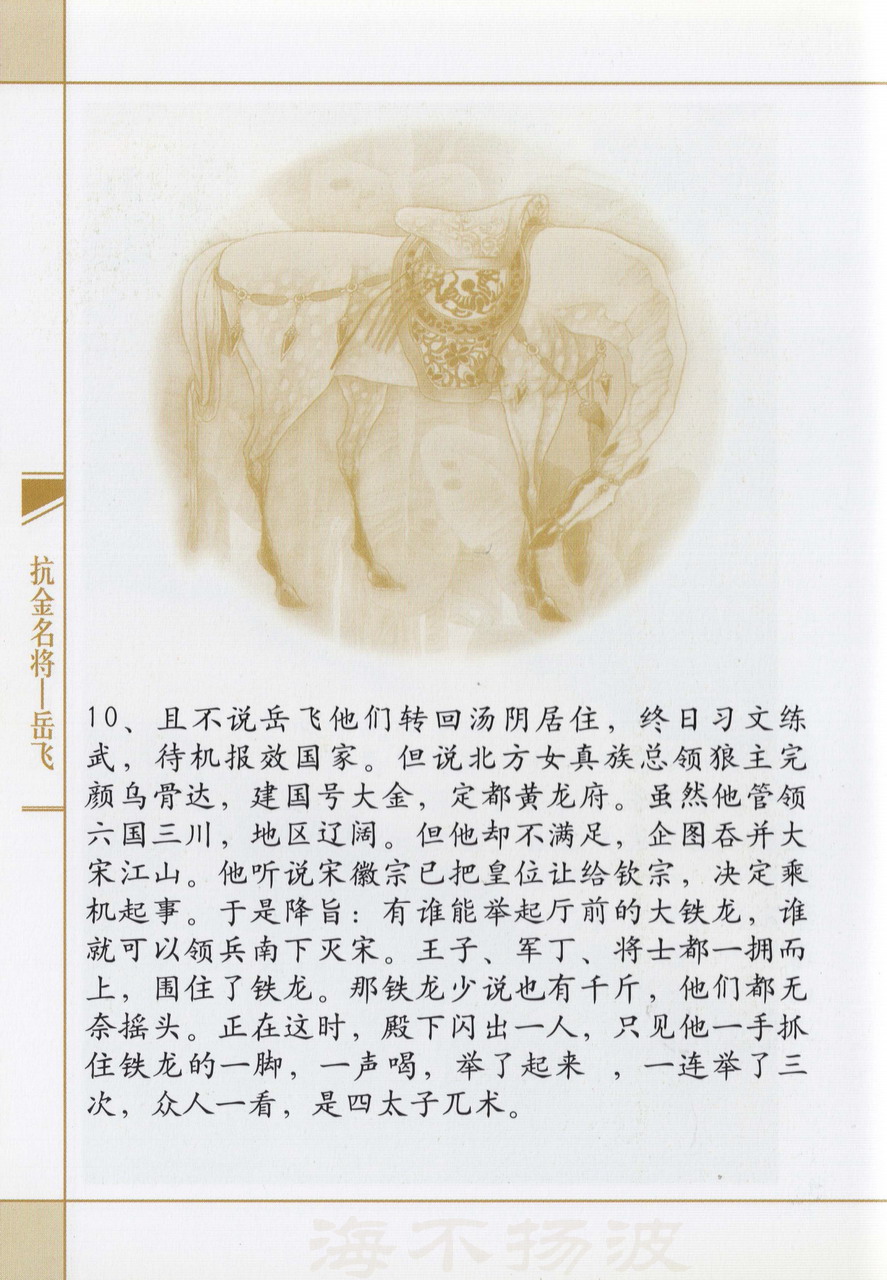 抗金名将—岳飞
10、且不说岳飞他们转回汤阴居住，终日习文练
武，待机报效国家。但说北方女真族总领狼主完
颜乌骨达，建国号大金，定都黄龙府。虽然他管领
六国三川，地区辽阔。但他却不满足，企图吞并大
宋江山。他听说宋徽宗已把皇位让给钦宗，决定乘
机起事。于是降旨：有谁能举起厅前的大铁龙，谁
就可以领兵南下灭宋。王子、军丁、将士都一拥而
上，围住了铁龙。那铁龙少说也有千斤，他们都无
奈摇头。正在这时，殿下闪出一人，只见他一手抓
住铁龙的一脚，一声喝，举了起来 ，一连举了三
次，众人一看，是四太子兀术。
海不扬波